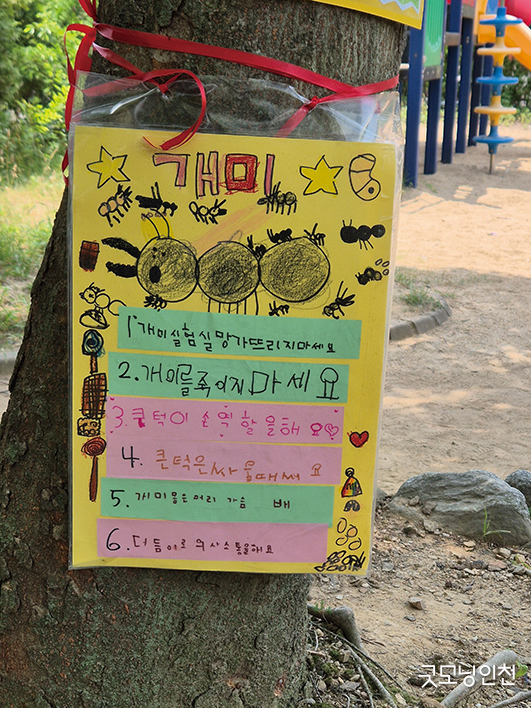 개미
1 개미실험실망가뜨리지마세요
2. 개미를죽이지마세요
3. 큰턱이 손역할을해요
4. 큰턱은싸울때써요
5. 개미몸은머리 가슴 배
6. 더듬이로 의사소통을해요
굿모닝인천